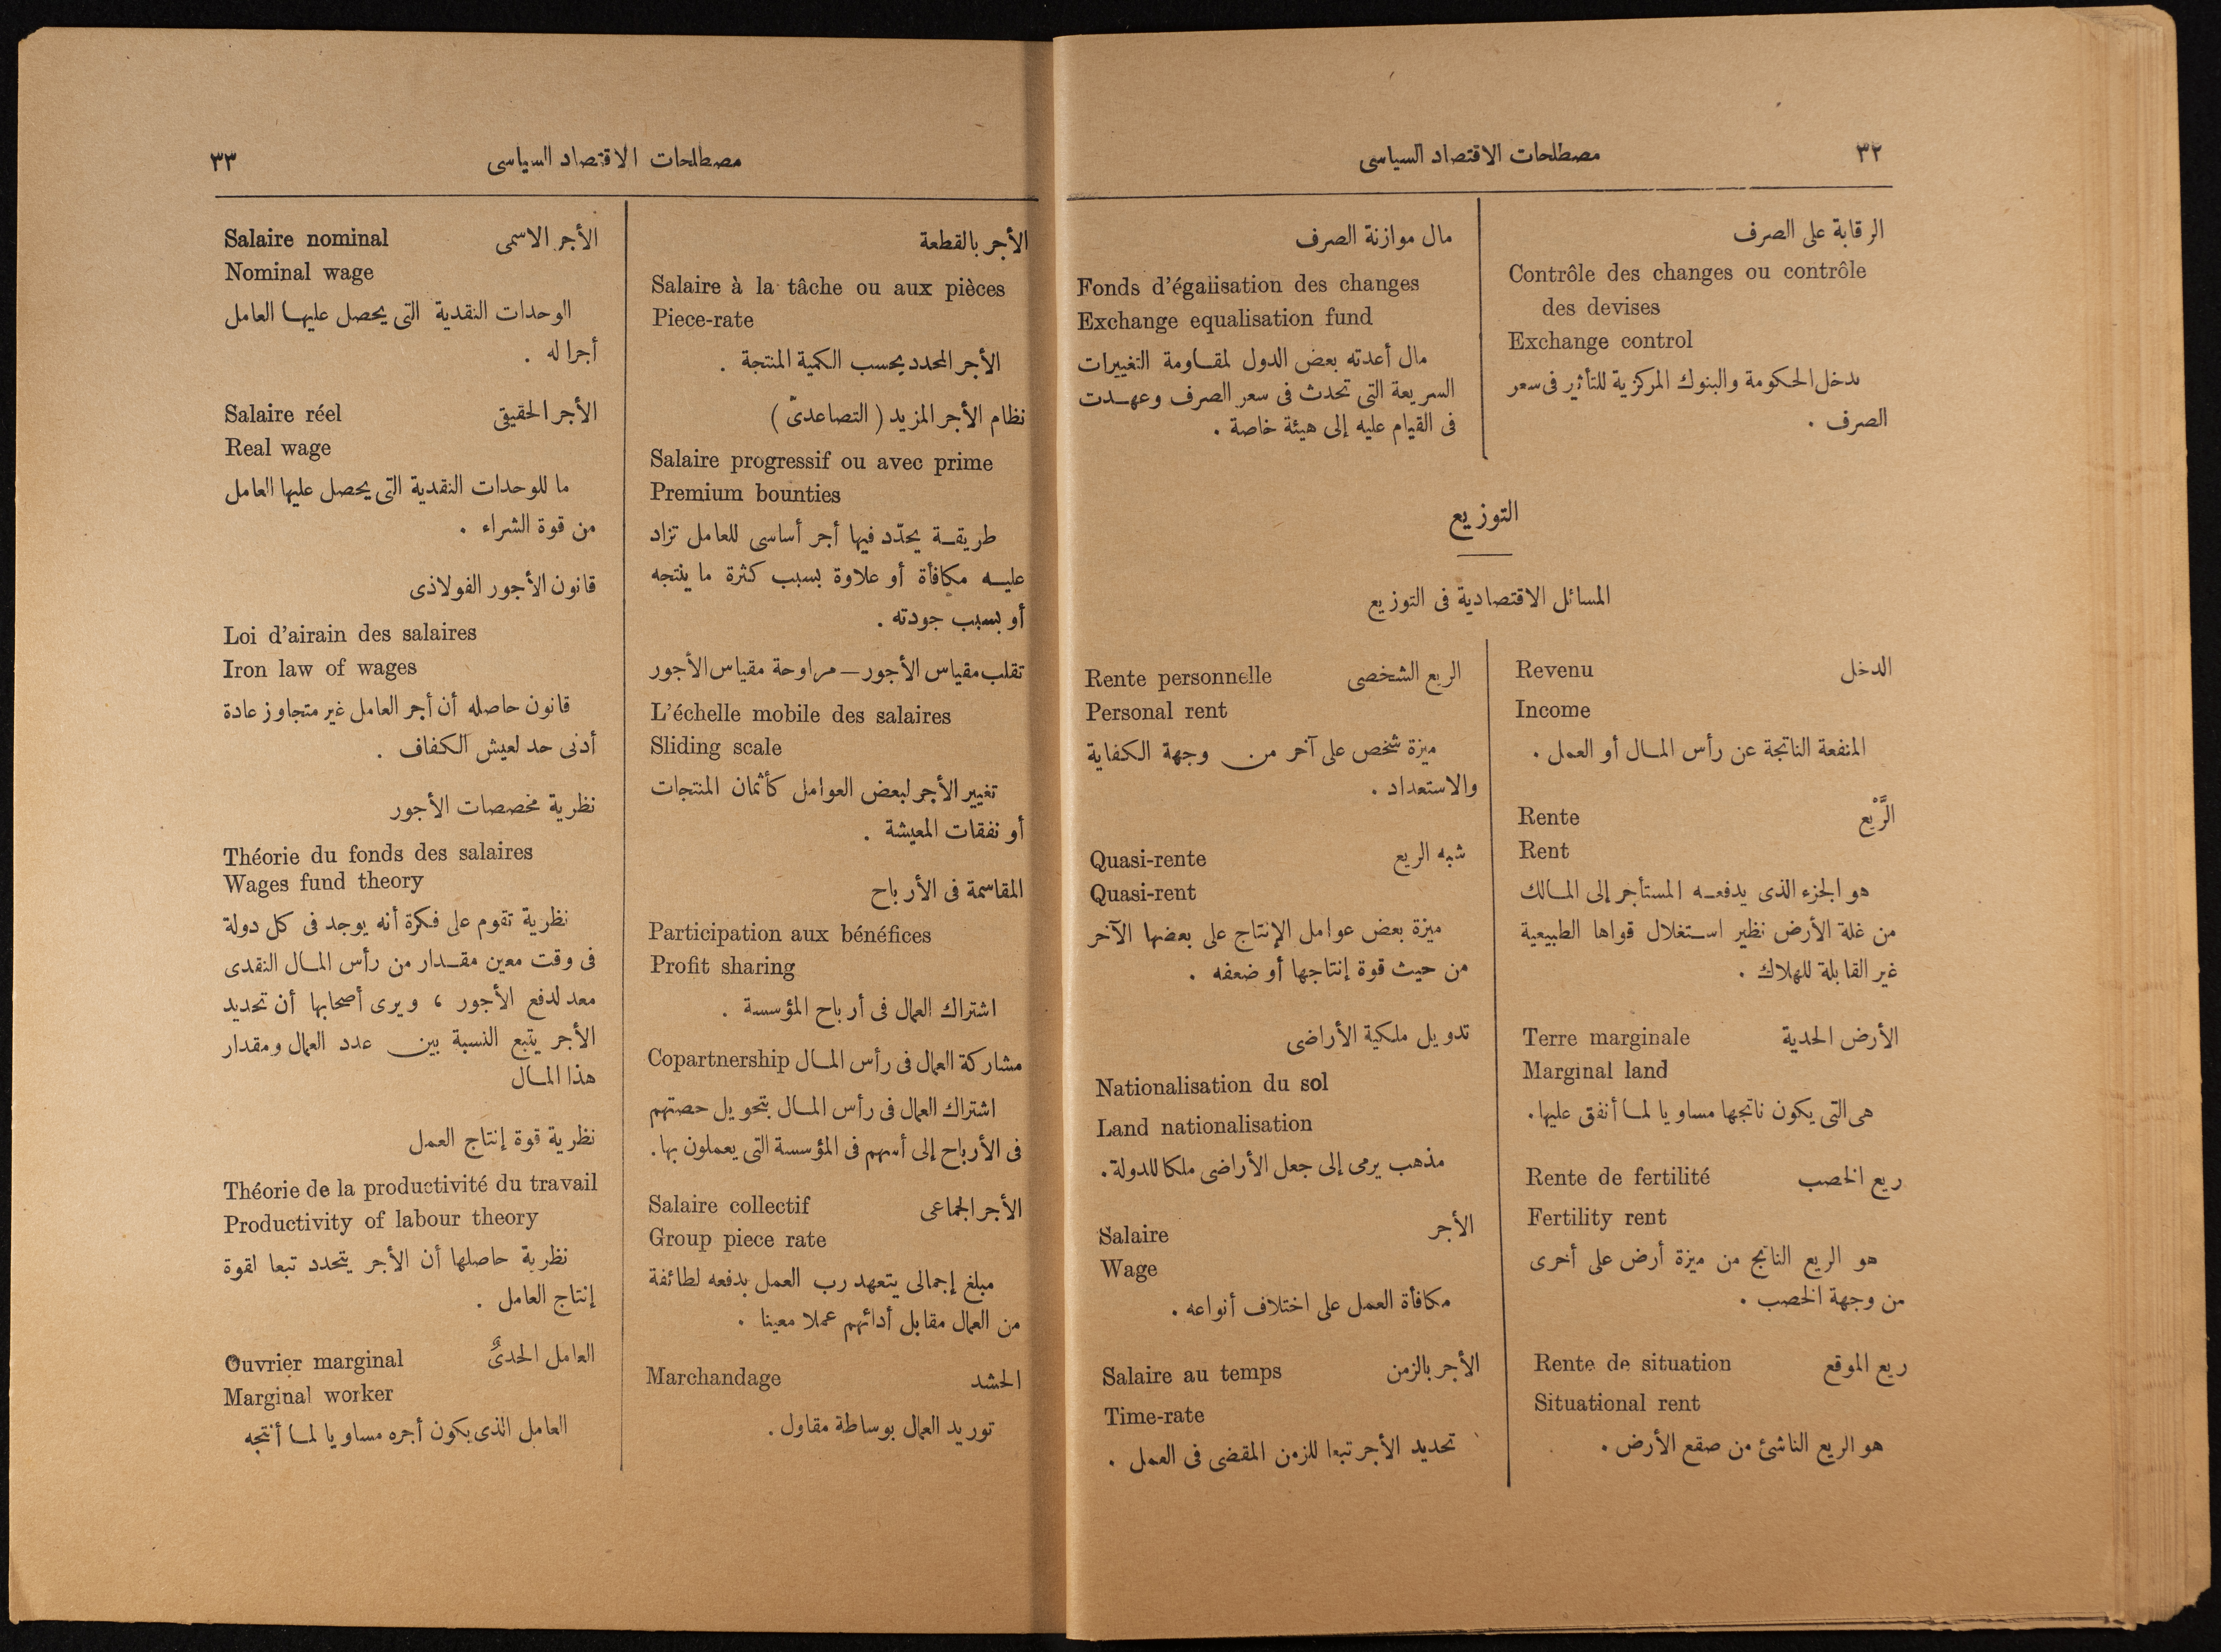 ٣٢
مصطلحات الاقتصاد السياسى
الرقابة على الصرف
Contrôle des changes ou contrôle
des devises
Exchange control
تدخل الحكومة والبنوك المركزية للتأثير فى سعر
الصرف .
مال موازنة الصرف
Fonds d'égalisation des changes
Exchange equalisation fund
مال أعدته بعض الدول لمقاومة التغييرات
السريعة التى تحدث فى سعر الصرف وعهدت
فى القيام عليه إلى هيئة خاصة .
التوزيع
المسائل الاقتصادية فى التوزيع
Revenu الدخل
Income
المنفعة الناتجة عن رأس المال أو العمل .
Rente الرَّيْع
Rent
هو الجزء الذى يدفعه المستأجر إلى المالك
من غلة الأرض نظير استغلال قواها الطبيعية
غير القابلة للهلاك .
Terre marginale الأرض الحدية
Marginal land
هى التى يكون ناتجها مساويا لما أنفق عليها .
Rente de fertilité ريع الخصب
Fertility rent
هو الريع الناتج من ميزة أرض على أخرى
من وجهة الخصب .
Rente de situation ريع الموقع
Situational rent
هو الريع الناشئ من صقع الأرض .
Rente personnelle الريع الشخصى
Personal rent
ميزة شخص على آخر من وجهة الكفاية
والاستعداد .
Quasi-rente شبه الريع
Quasi-rent
ميزة بعض عوامل الإنتاج على بعضها الآخر
من حيث قوة إنتاجها أو ضعفه .
تدويل ملكية الأراضى
Nationalisation du sol
Land nationalisation
مذهب يرمى إلى جعل الأراضى ملكا للدولة .
Salaire الأجر
Wage
مكافأة العمل على اختلاف أنواعه .
Salaire au temps الأجر بالزمن
Time-rate
تحديد الأجر تبعا للزمن المقضى فى العمل .
مصطلحات الاقتصاد السياسى
٣٣
الأجر بالقطعة
Salaire à la tâche ou aux pièces
Piece-rate
الأجر المحدد بحسب الكمية المنتجة .
نظام الأجر المزيد ( التصاعدىّ )
Salaire progressif ou avec prime
Premium bounties
طريقة يحدّد فيها أجر أساسى للعامل تزاد
عليه مكافأة أو علاوة بسبب كثرة ما ينتجه
أو بسبب جودته .
تقلب مقياس الأجور — مراوحة مقياس الأجور
L'échelle mobile des salaires
Sliding scale
تغيير الأجر لبعض العوامل كأثمان المنتجات
أو نفقات المعيشة .
المقاسمة فى الأرباح
Participation aux bénéfices
Profit sharing
اشتراك العمال فى أرباح المؤسسة .
Copartnership مشاركة العمال فى رأس المال
اشتراك العمال فى رأس المال بتحويل حصتهم
فى الأرباح إلى أسهم فى المؤسسة التى يعملون بها .
Salaire collectif الأجر الجماعى
Group piece rate
مبلغ إجمالى يتعهد رب العمل بدفعه لطائفة
من العمال مقابل أدائهم عملا معينا .
Marchandage الحشد
توريد العمال بوساطة مقاول .
Salaire nominal الأجر الاسمى
Nominal wage
الوحدات النقدية التى يحصل عليها العامل
أجرا له .
Salaire réel الأجر الحقيقى
Real wage
ما للوحدات النقدية التى يحصل عليها العامل
من قوة الشراء .
قانون الأجور الفولاذى
Loi d'airain des salaires
Iron law of wages
قانون حاصله أن أجر العامل غير متجاوز عادة
أدنى حد لعيش الكفاف .
نظرية مخصصات الأجور
Théorie du fonds des salaires
Wages fund theory
نظرية تقوم على فكرة أنه يوجد فى كل دولة
فى وقت معين مقدار من رأس المال النقدى
معد لدفع الأجور ، ويرى أصحابها أن تحديد
الأجر يتبع النسبة بين عدد العمال ومقدار
هذا المال
نظرية قوة إنتاج العمل
Théorie de la productivité du travail
Productivity of labour theory
نظرية حاصلها أن الأجر يتحدد تبعا لقوة
إنتاج العامل .
Ouvrier marginal العامل الحدىّ
Marginal worker
العامل الذى يكون أجره مساويا لما أنتجه